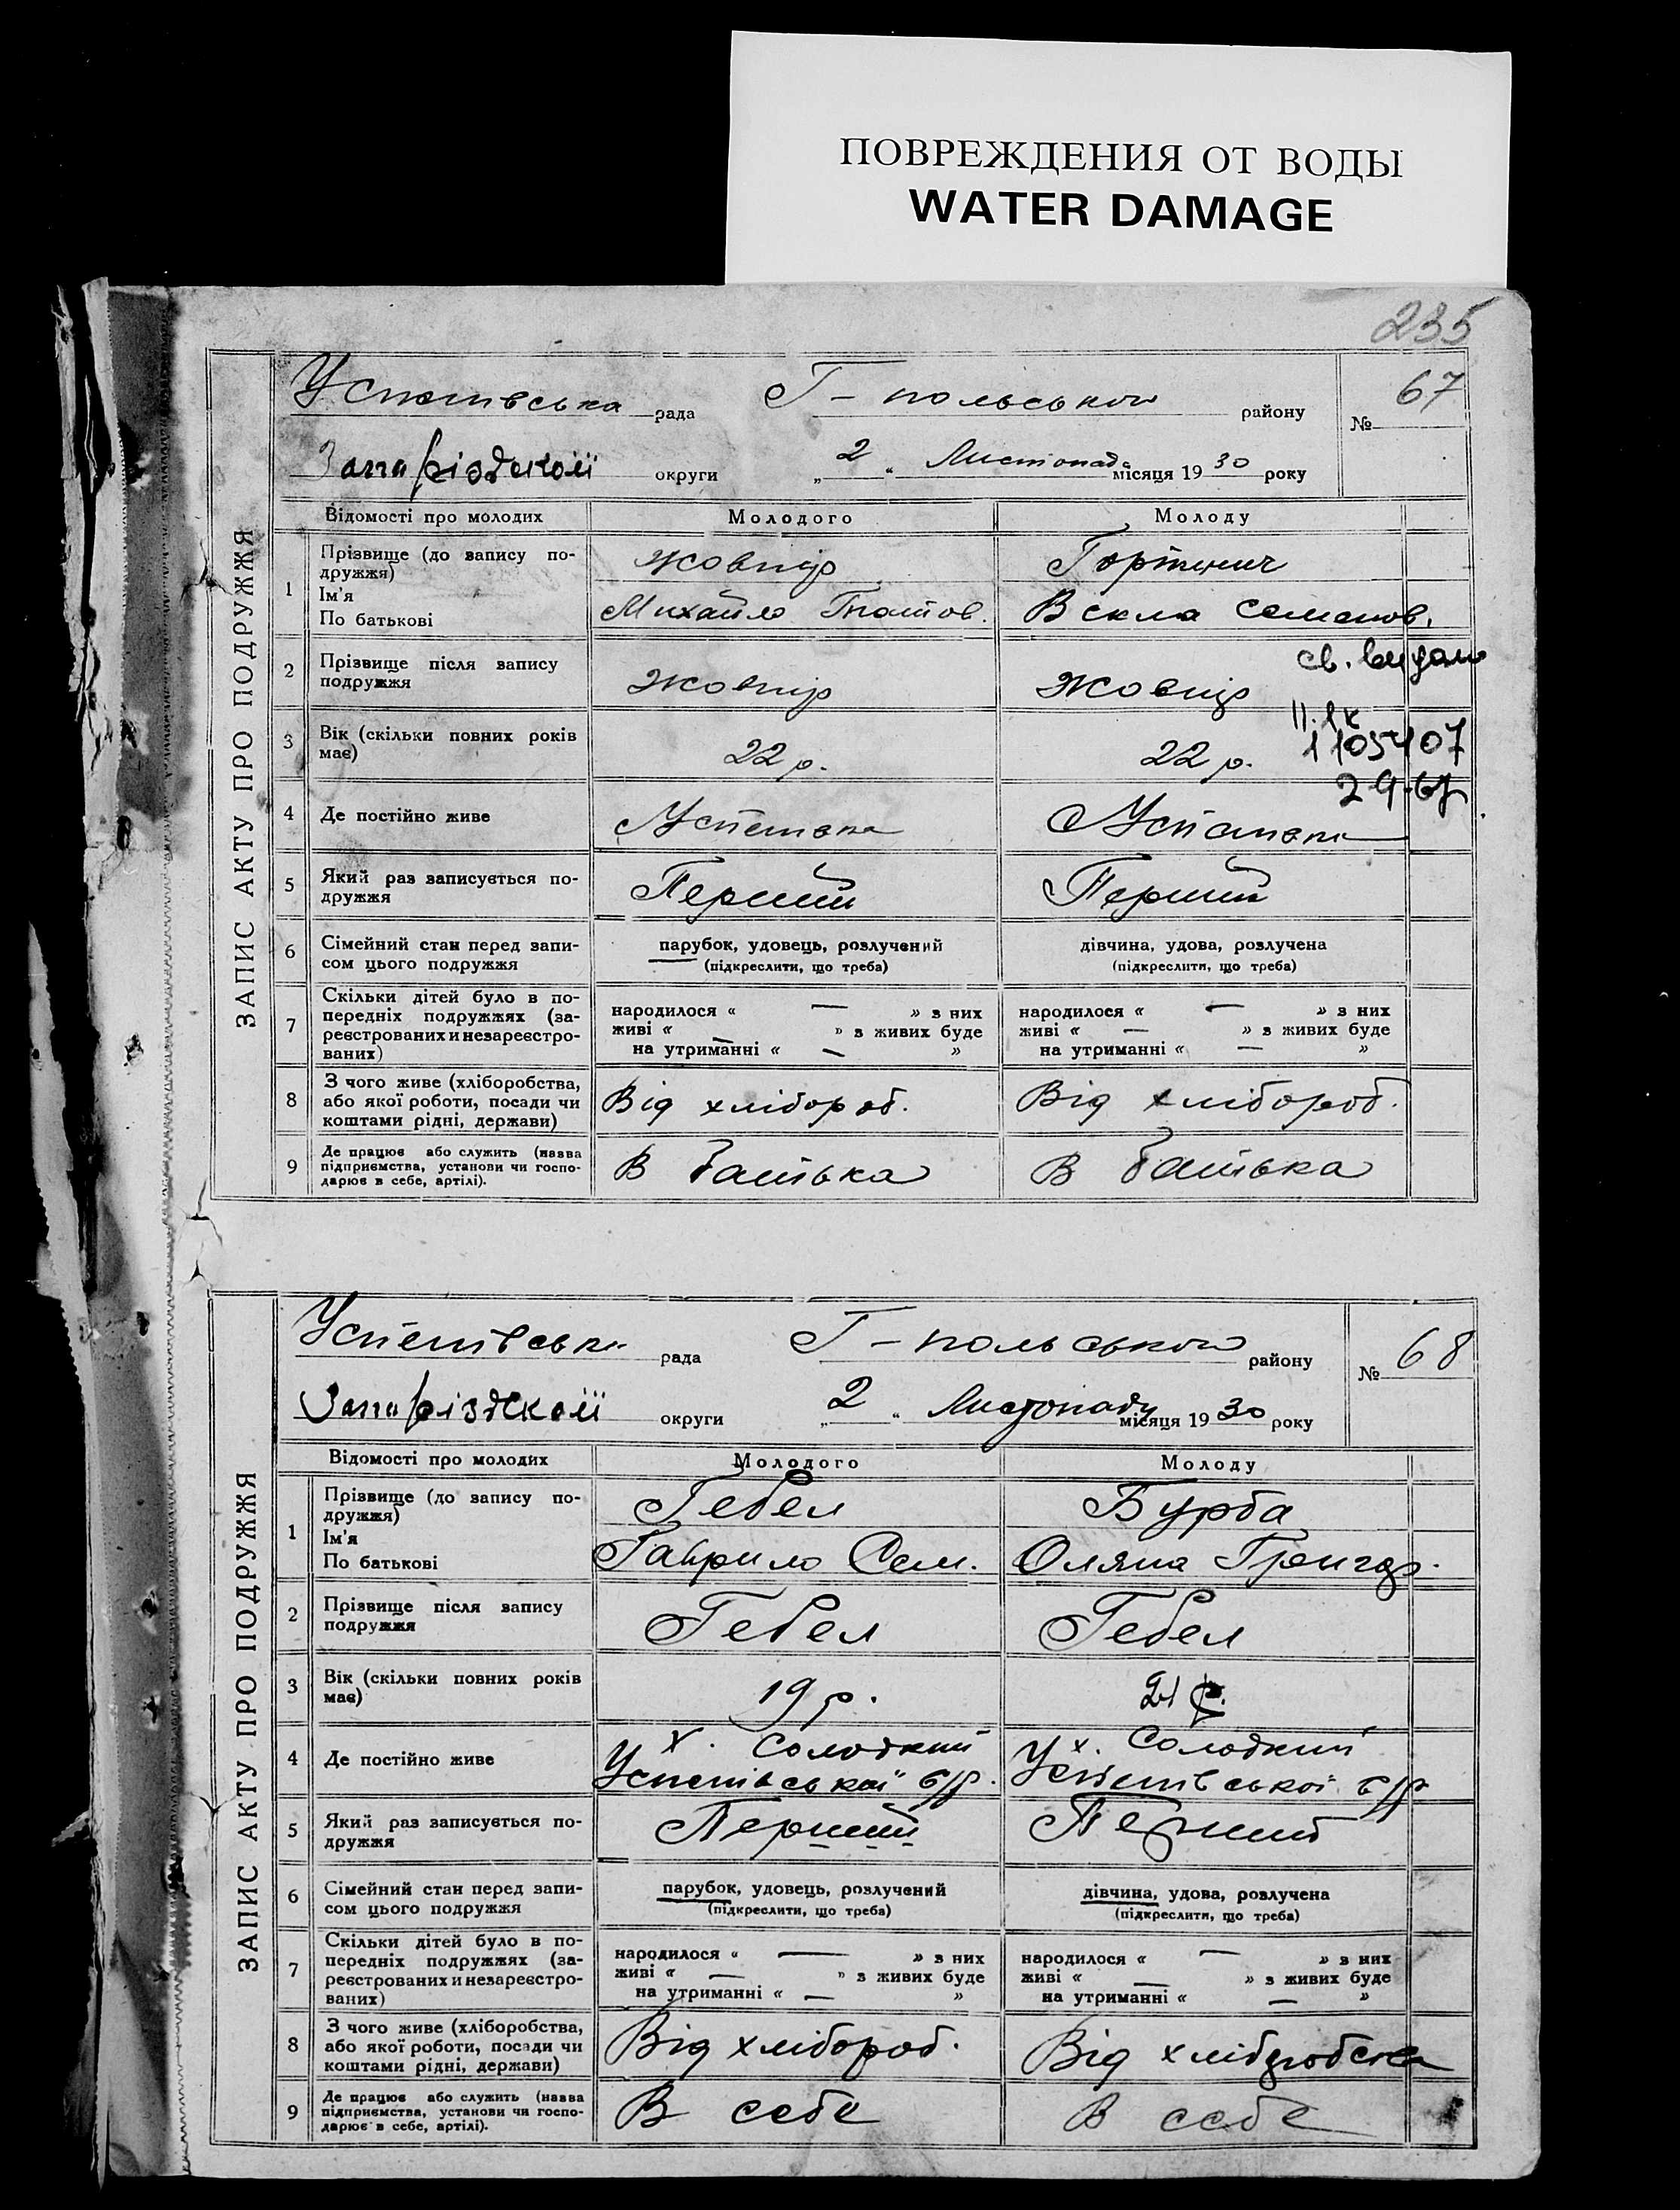 ПОВРЕЖДЕНИЯ ОТ ВОДЫ
WATER DAMAGE
235
ЗАПИС АКТУ ПРО ПОДРУЖЖЯ
Успетивська рада Г-польського району № 67
округи „2“ Листопада місяця 1930 року
Відомості про молодих Молодого Молоду
1 Прізвище (до запису по-
дружжя) Жовнір
Ім'я
По батькові Михайло Семенов.
2 Прізвище після запису
подружжя Жовнір Жовнір
св. видано
3 Вік (скільки повних років
має) 22 р. 22 р.
4 Де постійно живе
5 Який раз записується по-
дружжя Перший Перший
6 Сімейний стан перед запи-
сом цього подружжя парубок, удовець, розлучений дівчина, удова, розлучена
(підкреслити, що треба) (підкреслити, що треба)
7 Скільки дітей було в по-
передніх подружжях (за-
реєстрованих и незареєстро-
ваних)
народилося « — » з них народилося « — » з них
живі « — » з живих буде живі « — » з живих буде
на утриманні « — » на утриманні « — »
8 З чого живе (хліборобства,
або якої роботи, посади чи
коштами рідні, держави) Від хлібороб. Від хлібороб.
9 Де працює або служить (назва
підприємства, установи чи госпо-
дарює в себе, артілі). В батька В батька
ЗАПИС АКТУ ПРО ПОДРУЖЖЯ
рада Г-польського району № 68
округи „2“ Листопаду місяця 1930 року
Відомості про молодих Молодого Молоду
1 Прізвище (до запису по-
дружжя) Гебел Бурба
Ім'я
По батькові Гаврило Сем. Оляна Григор.
2 Прізвище після запису
подружжя Гебел Гебел
3 Вік (скільки повних років
має) 19 р. 21 р.
4 Де постійно живе х. Солодкий х. Солодкий
Успетівської с/р. Успетівської с/р
5 Який раз записується по-
дружжя Перший Перший
6 Сімейний стан перед запи-
сом цього подружжя парубок, удовець, розлучений дівчина, удова, розлучена
(підкреслити, що треба) (підкреслити, що треба)
7 Скільки дітей було в по-
передніх подружжях (за-
реєстрованих и незареєстро-
ваних)
народилося « — » з них народилося « — » з них
живі « — » з живих буде живі « — » з живих буде
на утриманні « — » на утриманні « — »
8 З чого живе (хліборобства,
або якої роботи, посади чи
коштами рідні, держави) Від хлібороб. Від хліборобства
9 Де працює або служить (назва
підприємства, установи чи госпо-
дарює в себе, артілі). В себе В себе